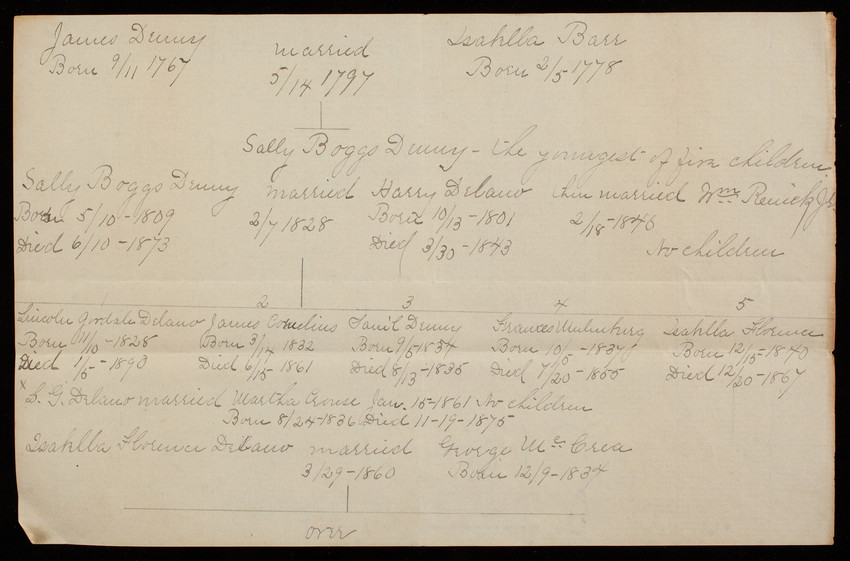 James Denny married Isabella Barr
Born 9/11 1767 5/14 1797 Born 2/5 1778
Sally Boggs Denny - the youngest of five children.
Sally Boggs Denny married Harry Delano then married Wm Renick Jr
Born 5/10 - 1809 2/7 1828 Born 10/13 - 1801 2/18 - 1846
Died 6/10 - 1873 Died 3/30 - 1843 No children
2 3 4 5
Lincoln Delano James Cornelius Sam'l Denny Frances Muhlenburg Isabella Florence
Born 11/10 - 1828 Born 3/14 1832 Born 9/5 - 1834 Born 10/5 - 1837 Born 12/15 - 1840
Died 1/5 - 1890 Died 6/15 - 1861 Died 8/13 - 1835 Died 7/20 - 1855 Died 12/20 - 1867
x L. G. Delano married Martha Crouse Jan. 15 - 1861 No children
Born 8/24 - 1836 Died 11 - 19 - 1875
Isabella Florence Delano married George McCrea
3/29 - 1860 Born 12/9 - 1834
over